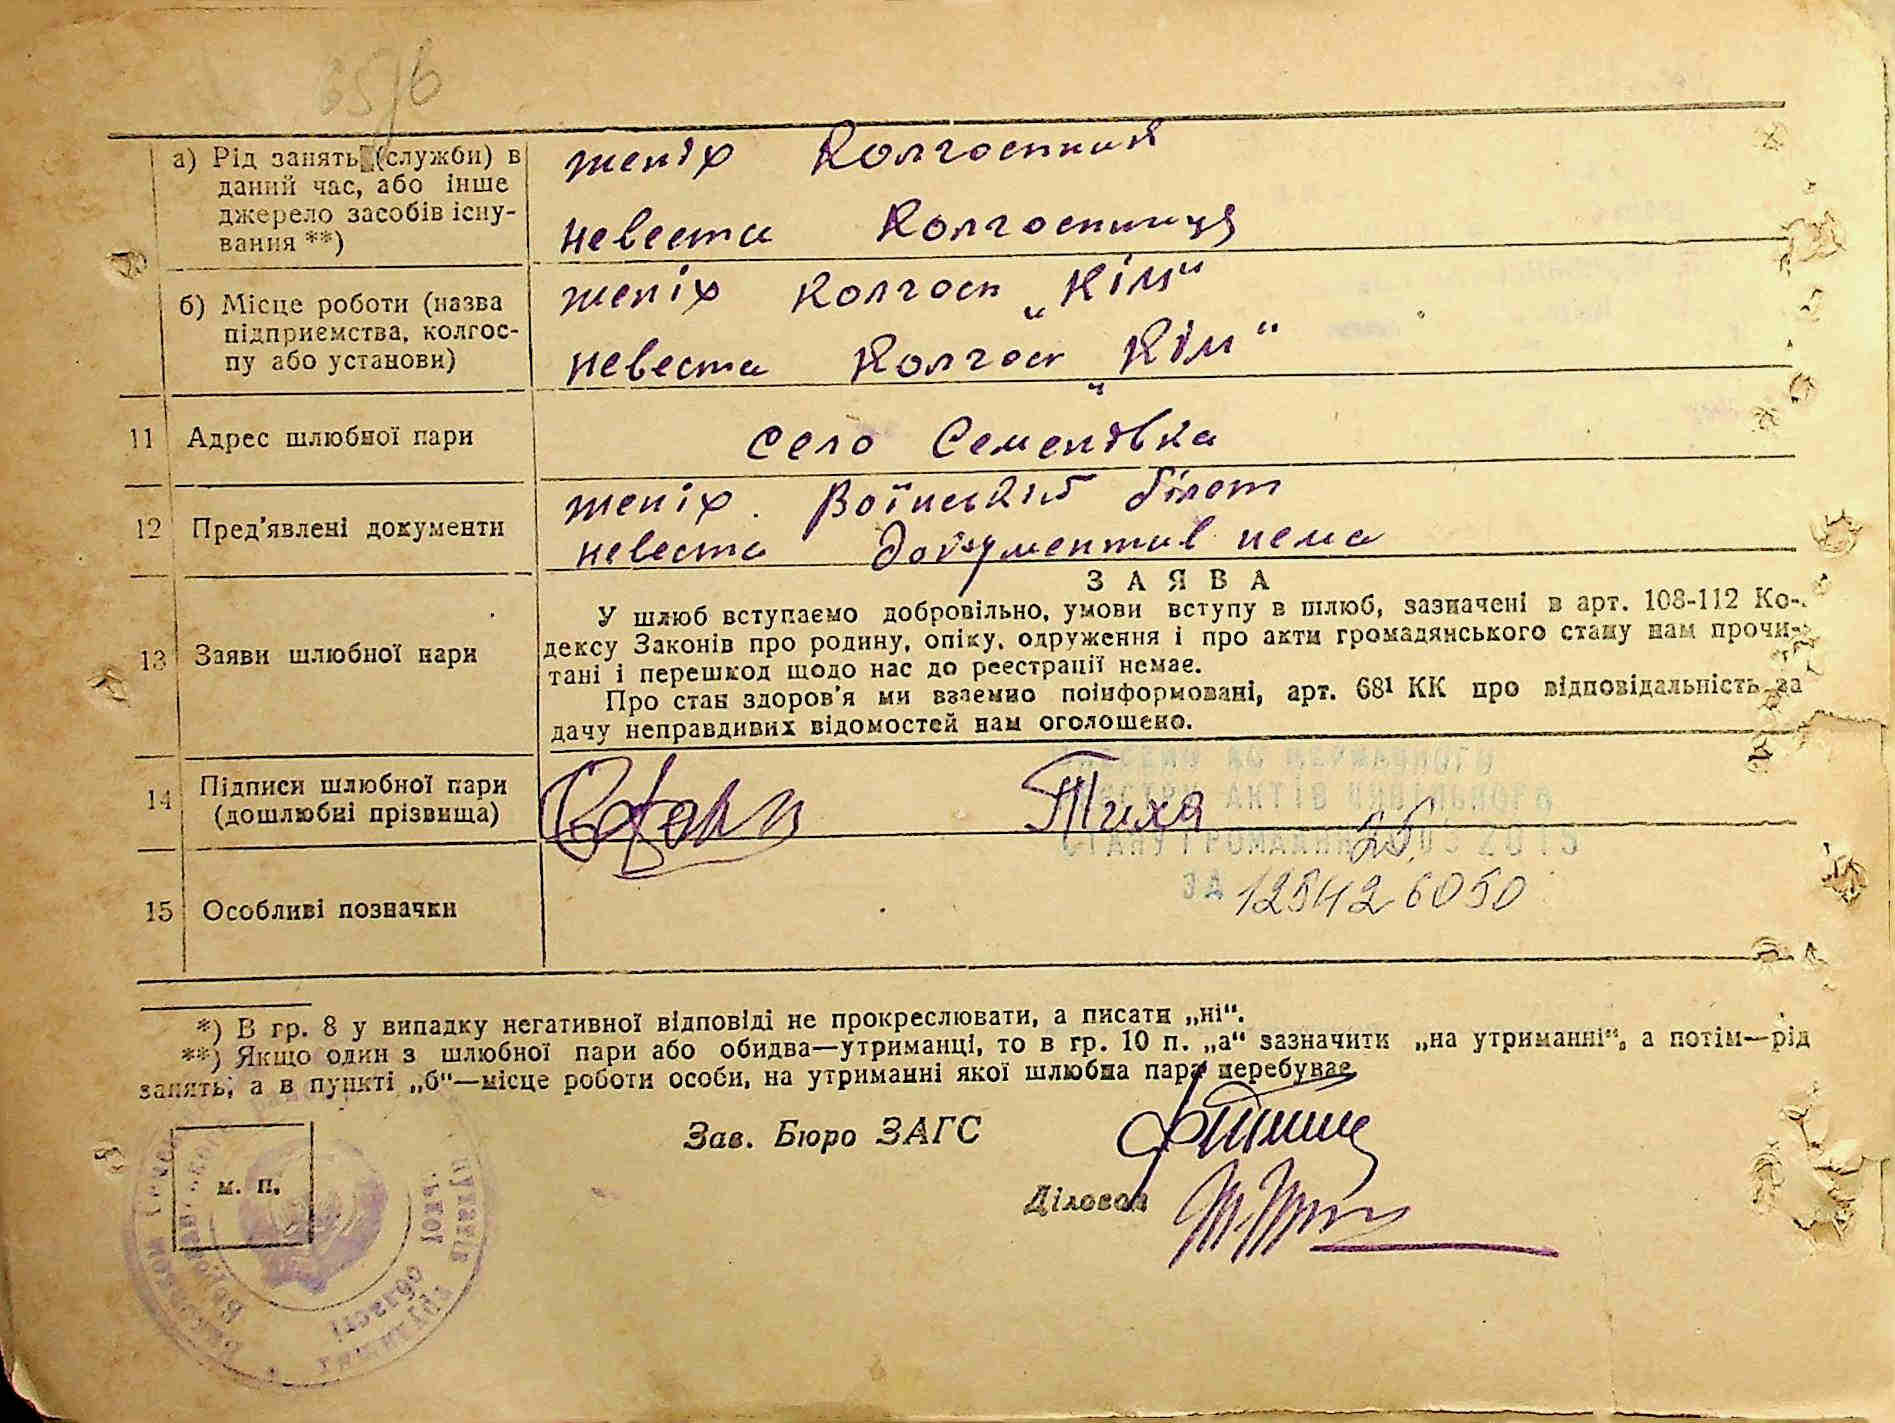 65/6
а) Рід занять (служби) в
даний час, або інше
джерело засобів існу-
вання **)
жепіх Колгоспник
невеста Колгоспниця
б) Місце роботи (назва
підприємства, колгос-
пу або установи)
жепіх колгосп „Кім"
невеста Колгосп „Кім"
11 Адрес шлюбної пари
село Семенівка
12 Пред'явлені документи
жепіх. Воїнський білет
невеста документив нема
13 Заяви шлюбної пари
ЗАЯВА
У шлюб вступаємо добровільно, умови вступу в шлюб, зазначені в арт. 108-112 Ко-
дексу Законів про родину, опіку, одруження і про акти громадянського стану нам прочи-
тані і перешкод щодо нас до реєстрації немає.
Про стан здоров'я ми взаємно поінформовані, арт. 68¹ КК про відповідальність за
дачу неправдивих відомостей нам оголошено.
14 Підписи шлюбної пари
(дошлюбні прізвища)
Тиха
ВНЕСЕНО ДО ДЕРЖАВНОГО
РЕЄСТРУ АКТІВ ЦИВІЛЬНОГО
СТАНУ ГРОМАДЯН 25 2015
ЗА 12542 6050
15 Особливі позначки
*) В гр. 8 у випадку негативної відповіді не прокреслювати, а писати „ні".
**) Якщо один з шлюбної пари або обидва—утриманці, то в гр. 10 п. „а" зазначити „на утриманні", а потім—рід
занять, а в пункті „б"—місце роботи особи, на утриманні якої шлюбна пара перебуває.
Зав. Бюро ЗАГС
м. п.
Діловод
області